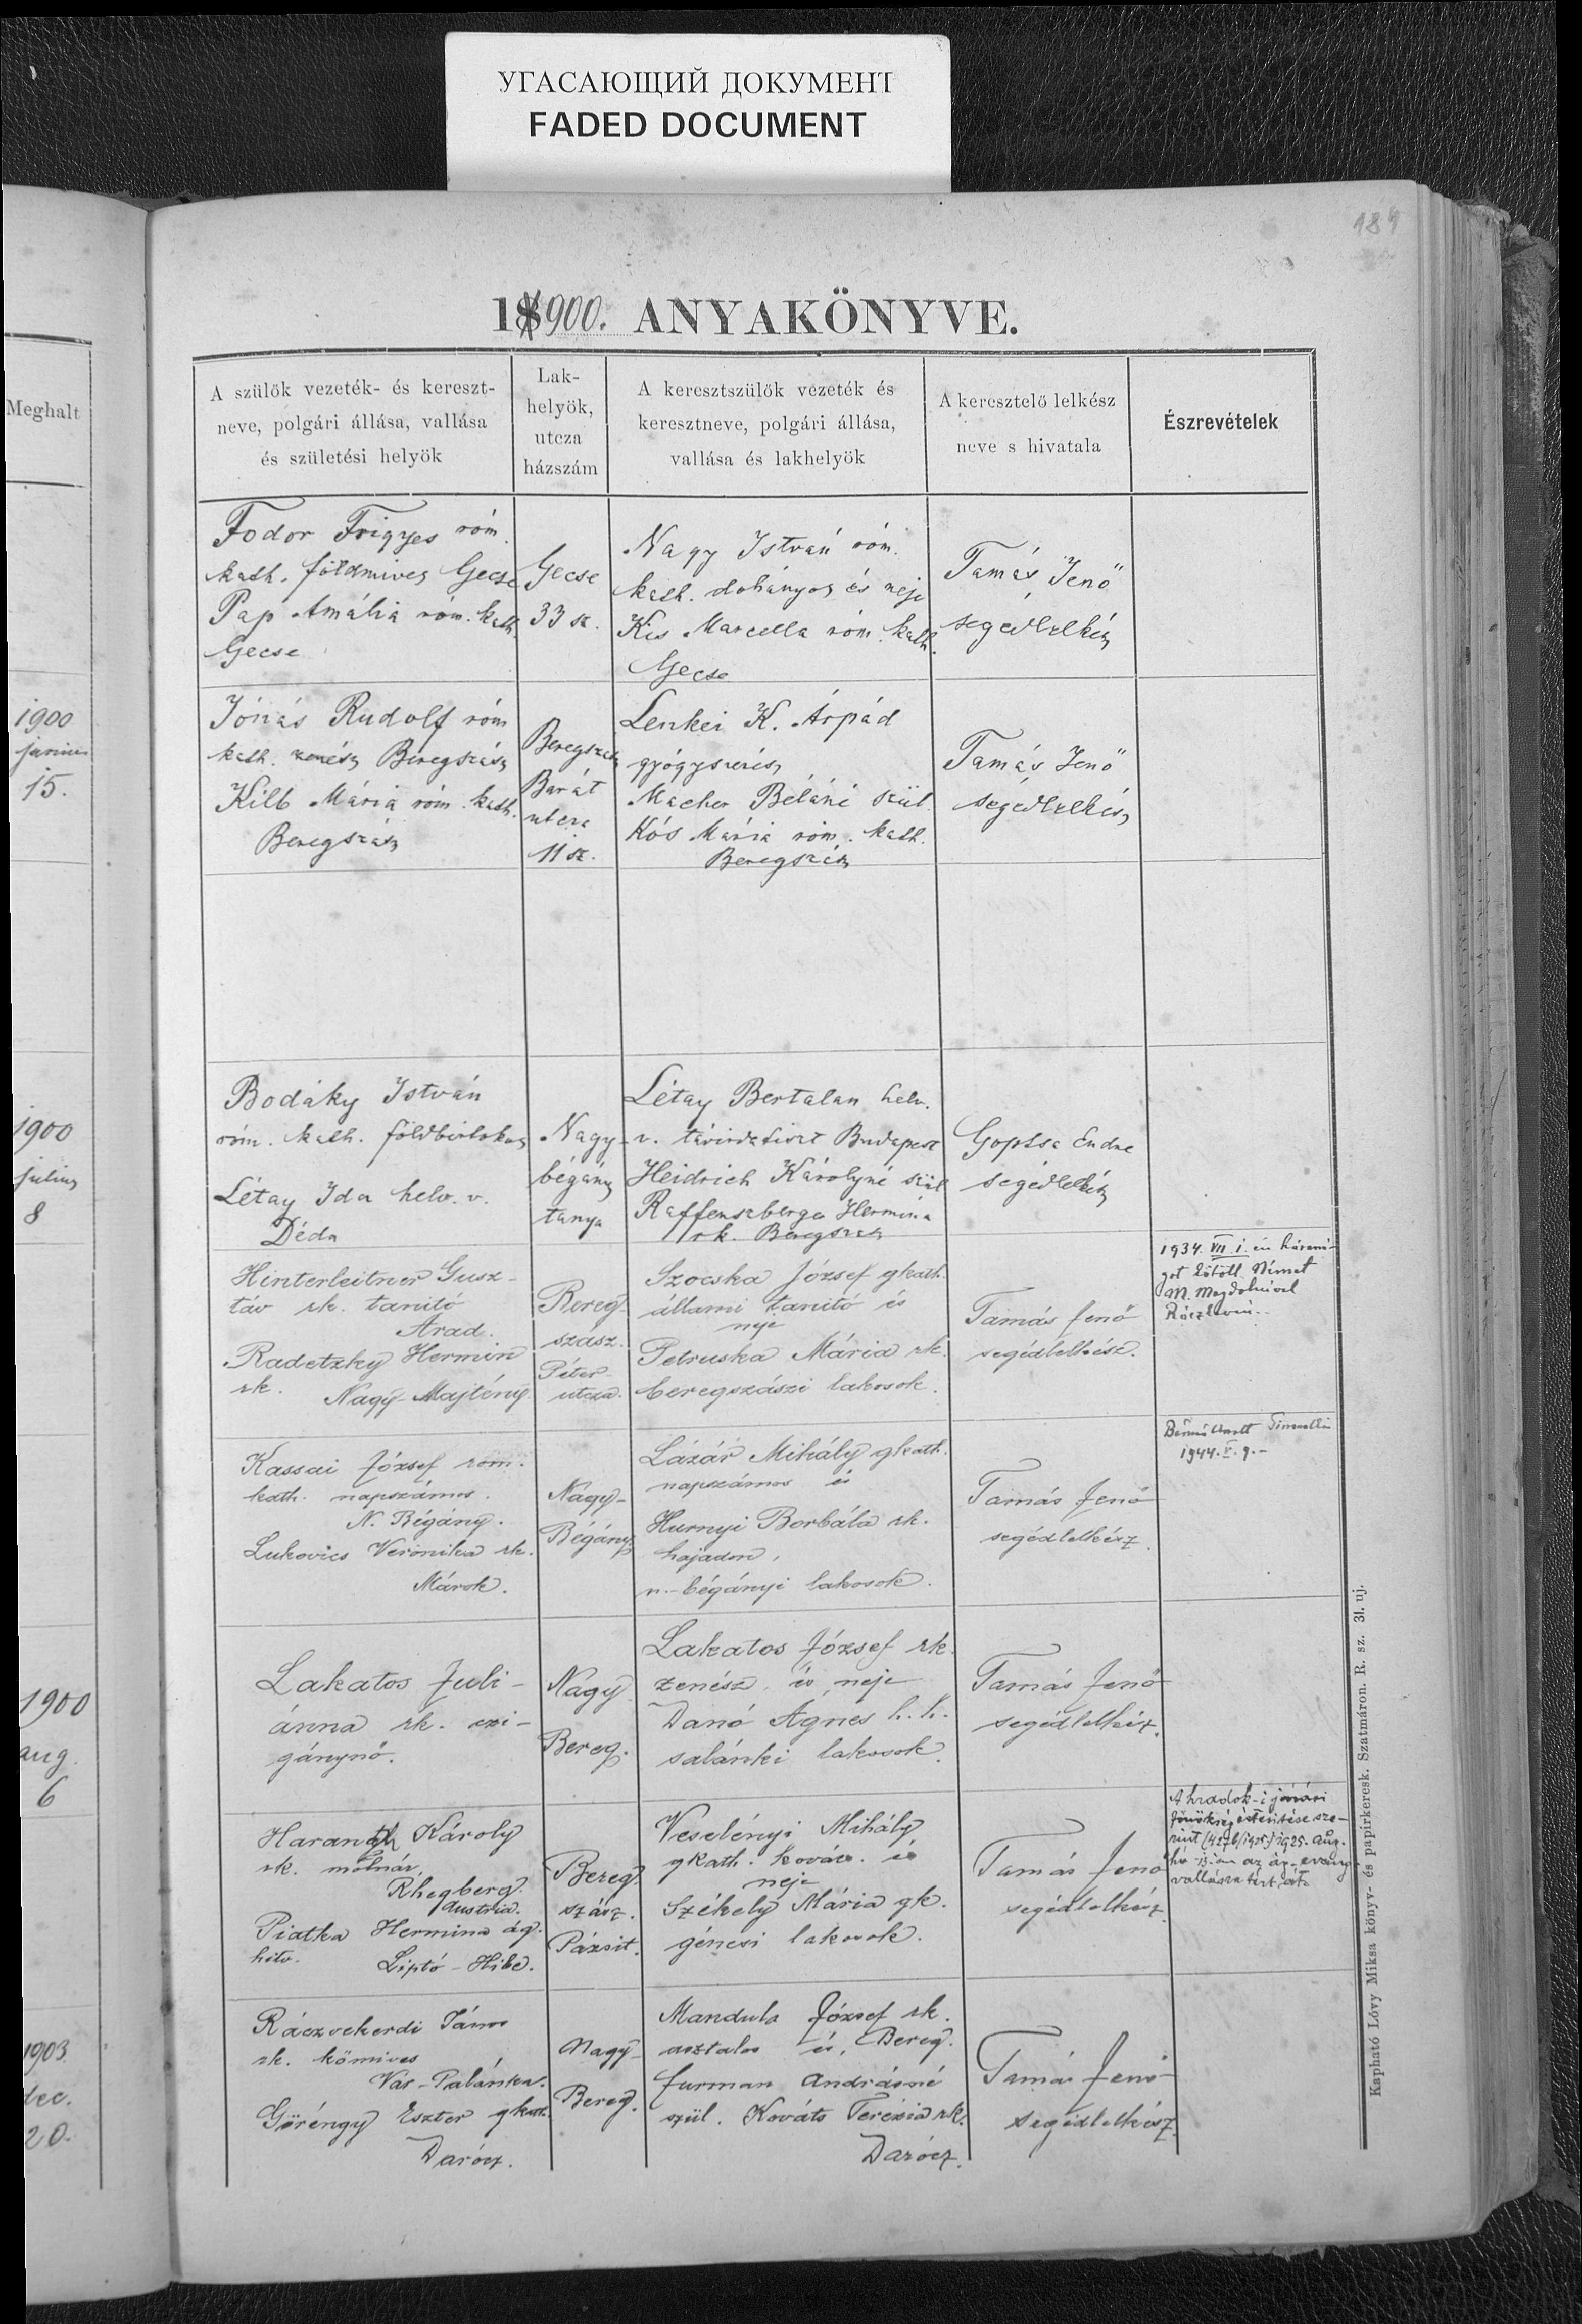 УГАСАЮЩИЙ ДОКУМЕНТ
FADED DOCUMENT
189
1900. ANYAKÖNYVE.
Meghalt
1900
junius
15.
1900
julius
8
1900
aug.
6
1903.
dec.
20.
A szülök vezeték- és kereszt-
neve, polgári állása, vallása
és születési helyök
Lak-
helyök,
utcza
házszám
A keresztszülök vezeték és
keresztneve, polgári állása,
vallása és lakhelyök
A keresztelő lelkész
neve s hivatala
Észrevételek
Fodor Frigyes róm.
kath. földmives Gecse
Pap Amália róm. kath.
Gecse
Gecse
33 sz.
Nagy István róm.
kath. dohányos és neje
Kis Marcella róm. kath.
Gecse
Tamás Jenő
segedlelkész
Jónás Rudolf róm
kath. zenész Beregszász
Kilb Mária róm. kath.
Beregszász
Beregszász
Barát
utcza
11 sz.
Lenkei K. Árpád
gyógyszerész
Macher Béláné szül.
Kós Mária róm. kath.
Beregszász
Tamás Jenő
segédlelkész
Bodáky István
róm. kath. földbirtokos
Létay Ida helv. v.
Déda
Nagy-
bégány
tanya
Létay Bertalan helv.
v. távirdatiszt Budapest
Heidrich Károlyné szül
Raffenszberger Hermina
rk. Beregszász
Goptsa Endre
segédlelkész
Hinterleitner Gusz-
táv rk. tanitó
Arad.
Radetzky Hermin
rk. Nagy-Majtény.
Bereg-
szász.
Péter
utcza.
Szocska József gkath.
állami tanitó és
neje
Petruska Mária rk.
beregszászi lakosok.
Tamás Jenő
segédlelkész.
1934. VII. 1. én házassá-
got kötött Német
M. Magdolnával
Kassai József róm.
kath. napszámos.
N. Bégány.
Lukovics Veronika rk.
Márok.
Nagy-
Bégány.
Lázár Mihály gkath.
napszámos és
Hurnyi Borbála rk.
hajadon,
n.-bégányi lakosok.
Tamás Jenő
segédlelkész.
1944. V. 9.-
Lakatos Juli-
ánna rk. czi-
gánynő.
Nagy
Bereg.
Lakatos József rk.
zenész és neje
Danó Ágnes h. h.
salánki lakosok.
Tamás Jenő
segédlelkész.
Haranth Károly
rk. molnár,
Rhegberg.
Austria.
Piatka Hermina ág.
hitv. Liptó-Hibe.
Bereg
szász.
Pázsit.
Veselényi Mihály
gkath. kovács és
neje
Székely Mária gk.
génesi lakosok.
Tamás Jenő
segédlelkész
A hradok-i járási
főnökség értesitése sze-
rint 1925. aug.
hó 13-án az ág. evang.
vallásra tért át.
Ráczvekerdi János
rk. kőmives
Vár-Palánka.
Göröngy Eszter gkath.
Darócz.
Nagy-
Bereg.
Mandula József rk.
asztalos és, Bereg.
Furman Andrásné
szül. Kováts Terézia rk.
Darócz.
Tamás Jenő
segédlelkész
Kapható Lővy Miksa könyv- és papirkeresk. Szatmáron. R. sz. 31. uj.